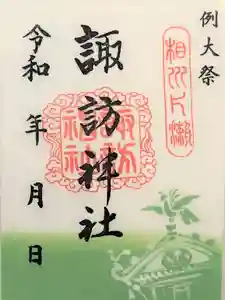 例大祭
相州片瀬
諏訪神社
令和 年 月 日